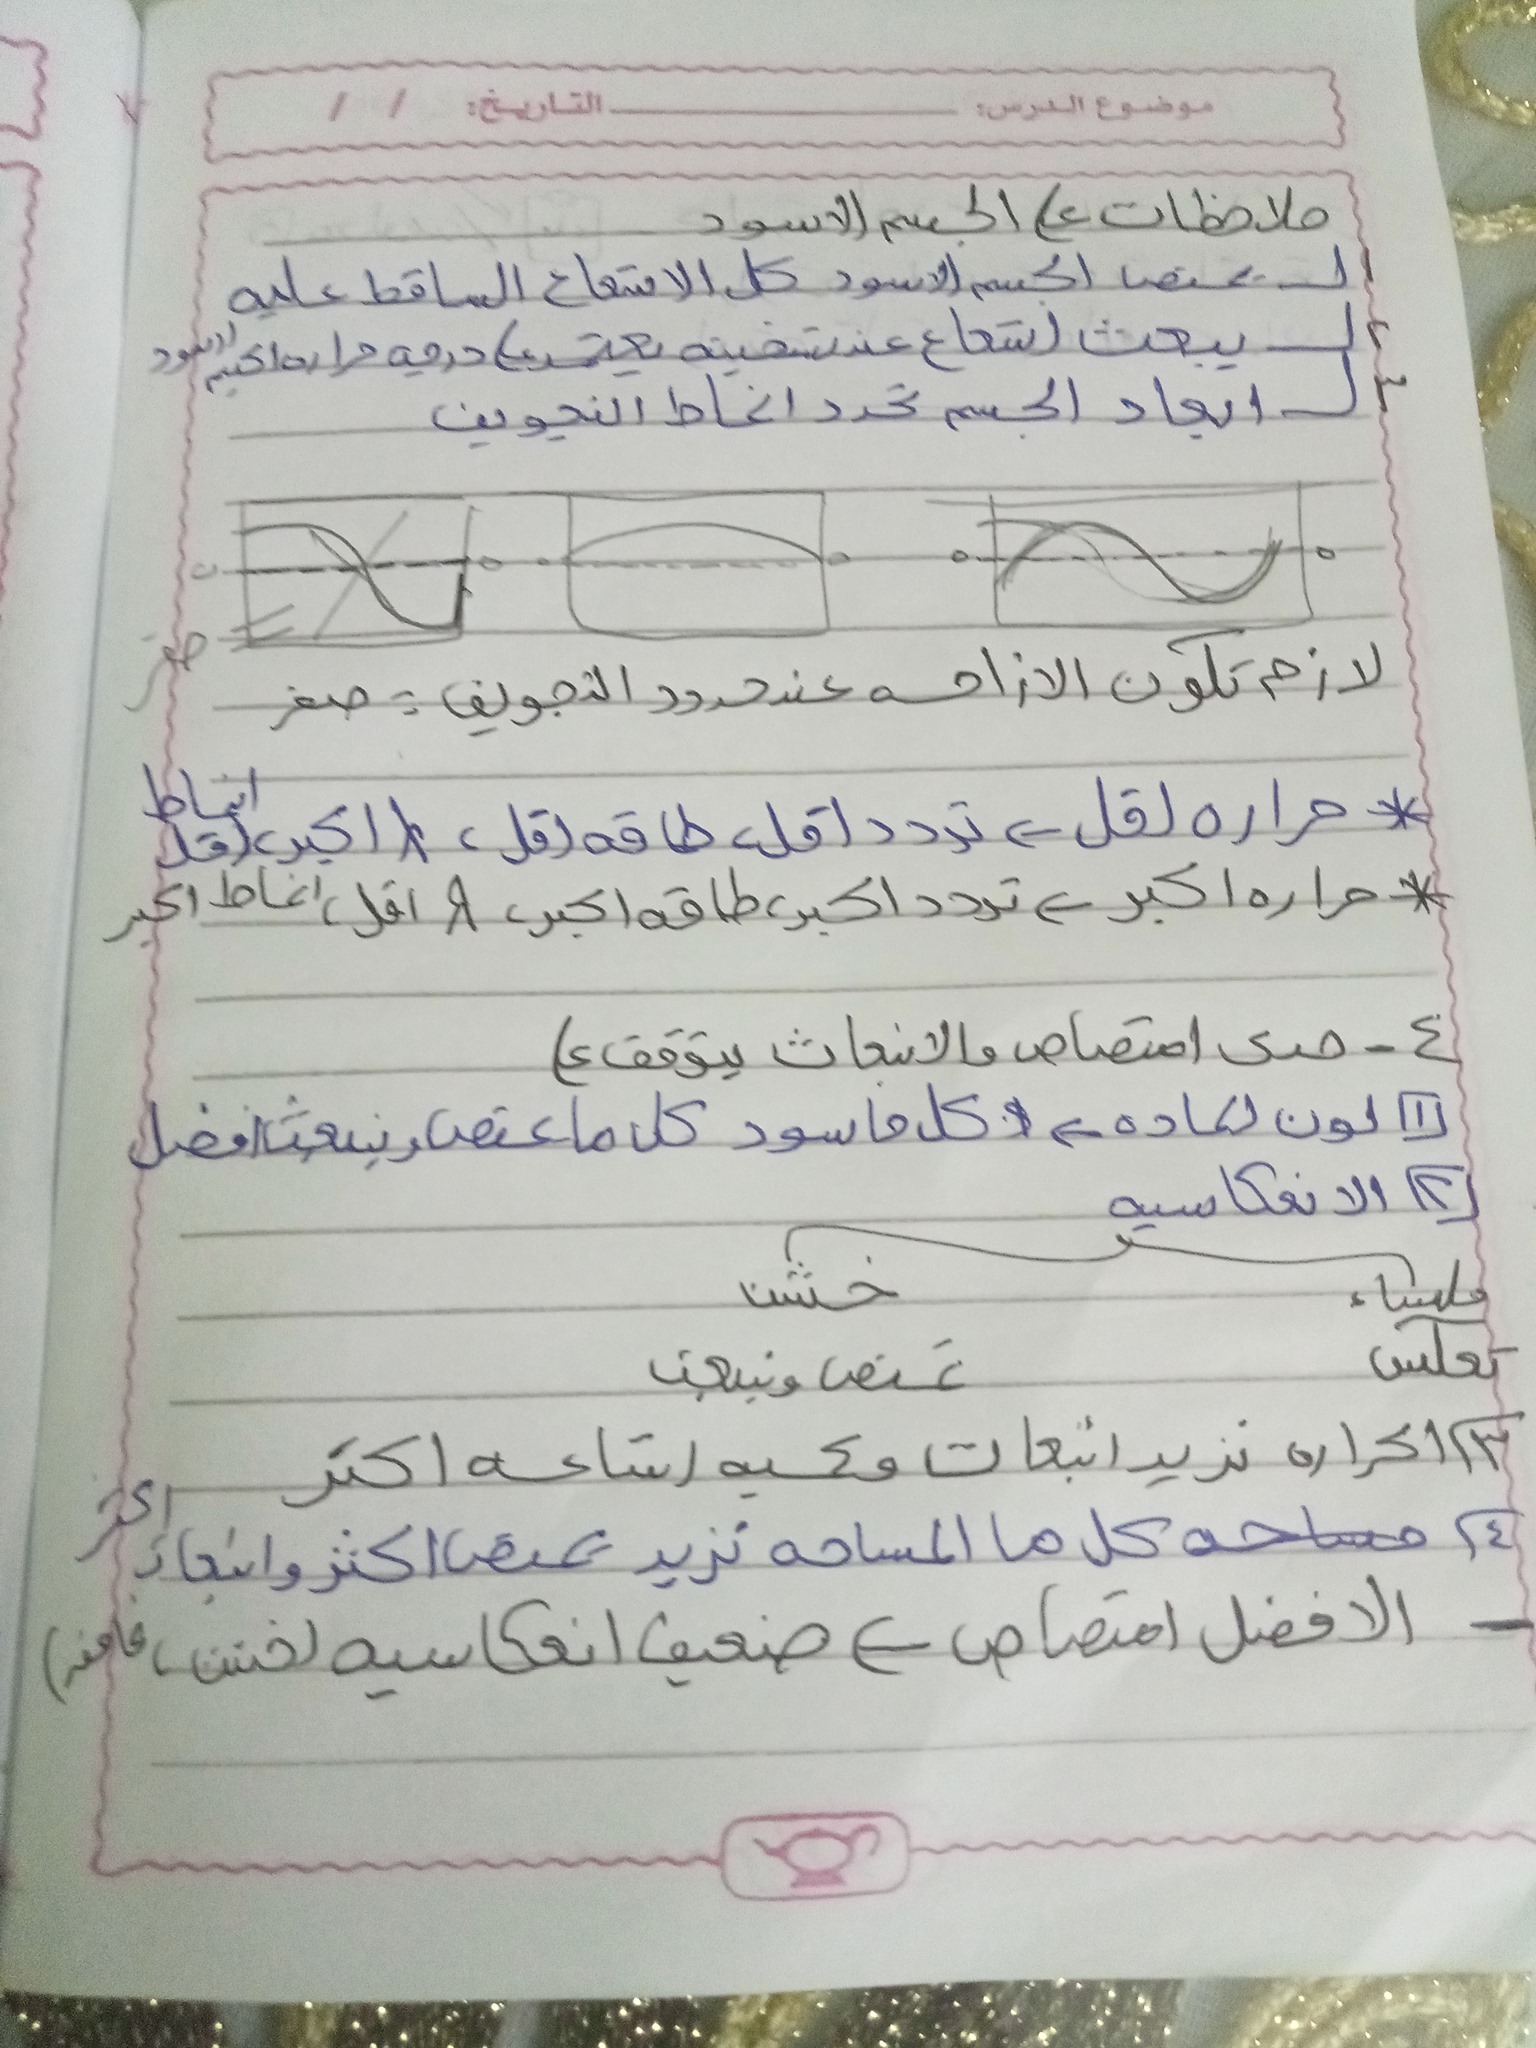 موضوع الدرس: التاريخ: / /
ملاحظات ع الجسم الاسود
١- يمتص الجسم الاسود كل الاشعاع الساقط عليه
٢- يبعث اشعاع عند تسخينه يعتمد ع درجه حراره الجسم الاسود
٣- ابعاد الجسم تحدد انماط التجويف
صفر
لازم تكون الازاحه عند حدود التجويف = صفر
* حراره اقل ← تردد اقل، طاقه اقل، λ اكبر، انماط اقل
* حراره اكبر ← تردد اكبر، طاقه اكبر، λ اقل، انماط اكبر
٤- مدى امتصاص والانبعاث يتوقف ع
١ لون الماده ← كل ما اسود كل ما يمتص وينبعث افضل
٢ الانعكاسيه
ملساء خشن
تعكس يمتص وينبعث
٣ الحراره تزيد انبعاث وكميه اشاعه اكثر
٤ مساحه كل ما المساحه تزيد يمتص اكثر وانبعاث اكثر
- الافضل امتصاص ← ضعيف انعكاسيه (خشن، غامق)